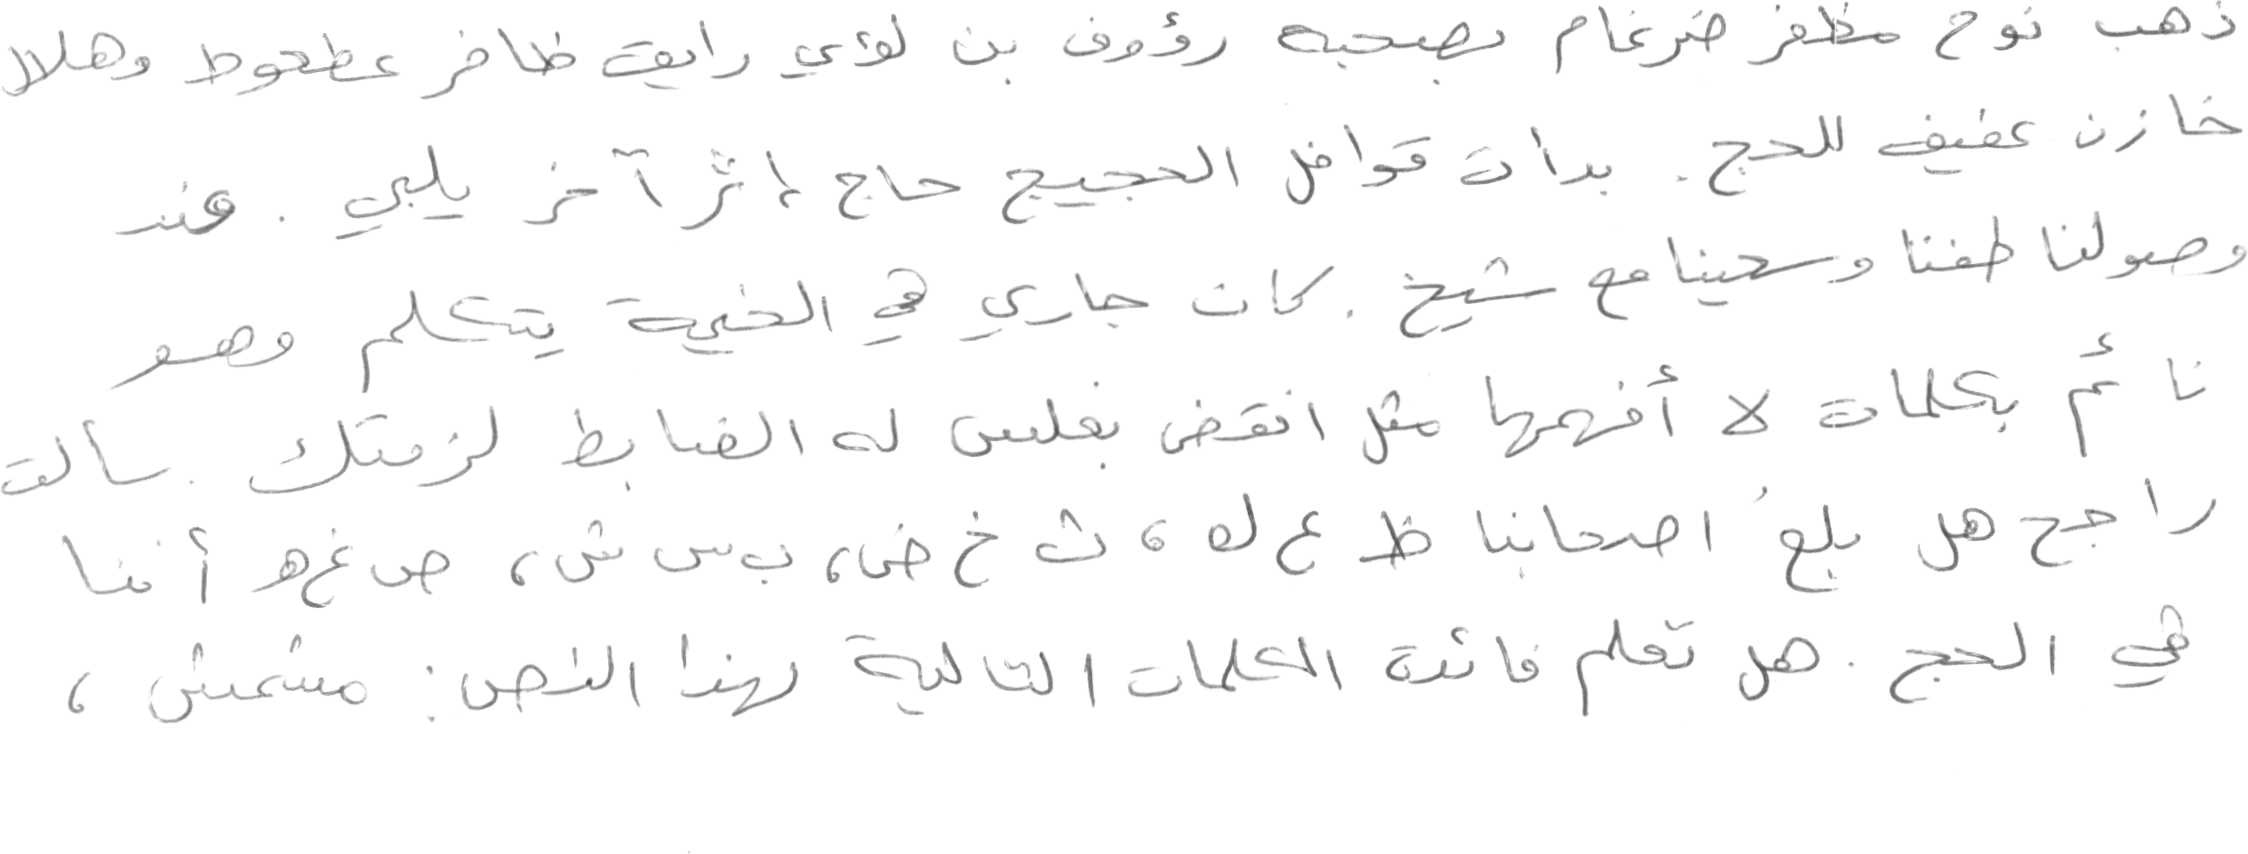 ذهب نوح مظفر ضرغام بصحبه رؤوف بن لؤي رايق ظافر عطعوط وهلال
خازن عفيف للحج. بدأت قوافل الحجيج حاج إثر آخر يلبي. عند
وصولنا طفنا وسعينا مع شيخ. كان جاري في الخيمة يتكلم وهو
نائم بكلمات لا أفهمها مثل انقض بغلس له الضابط لزمتك. سألت
راجح هل بلغ اصحابنا ظ ع ك، ث خ ض، ب س ش، ص غ ه أننا
في الحج. هل تعلم فائدة الكلمات التالية لهذا النص: مشمش،